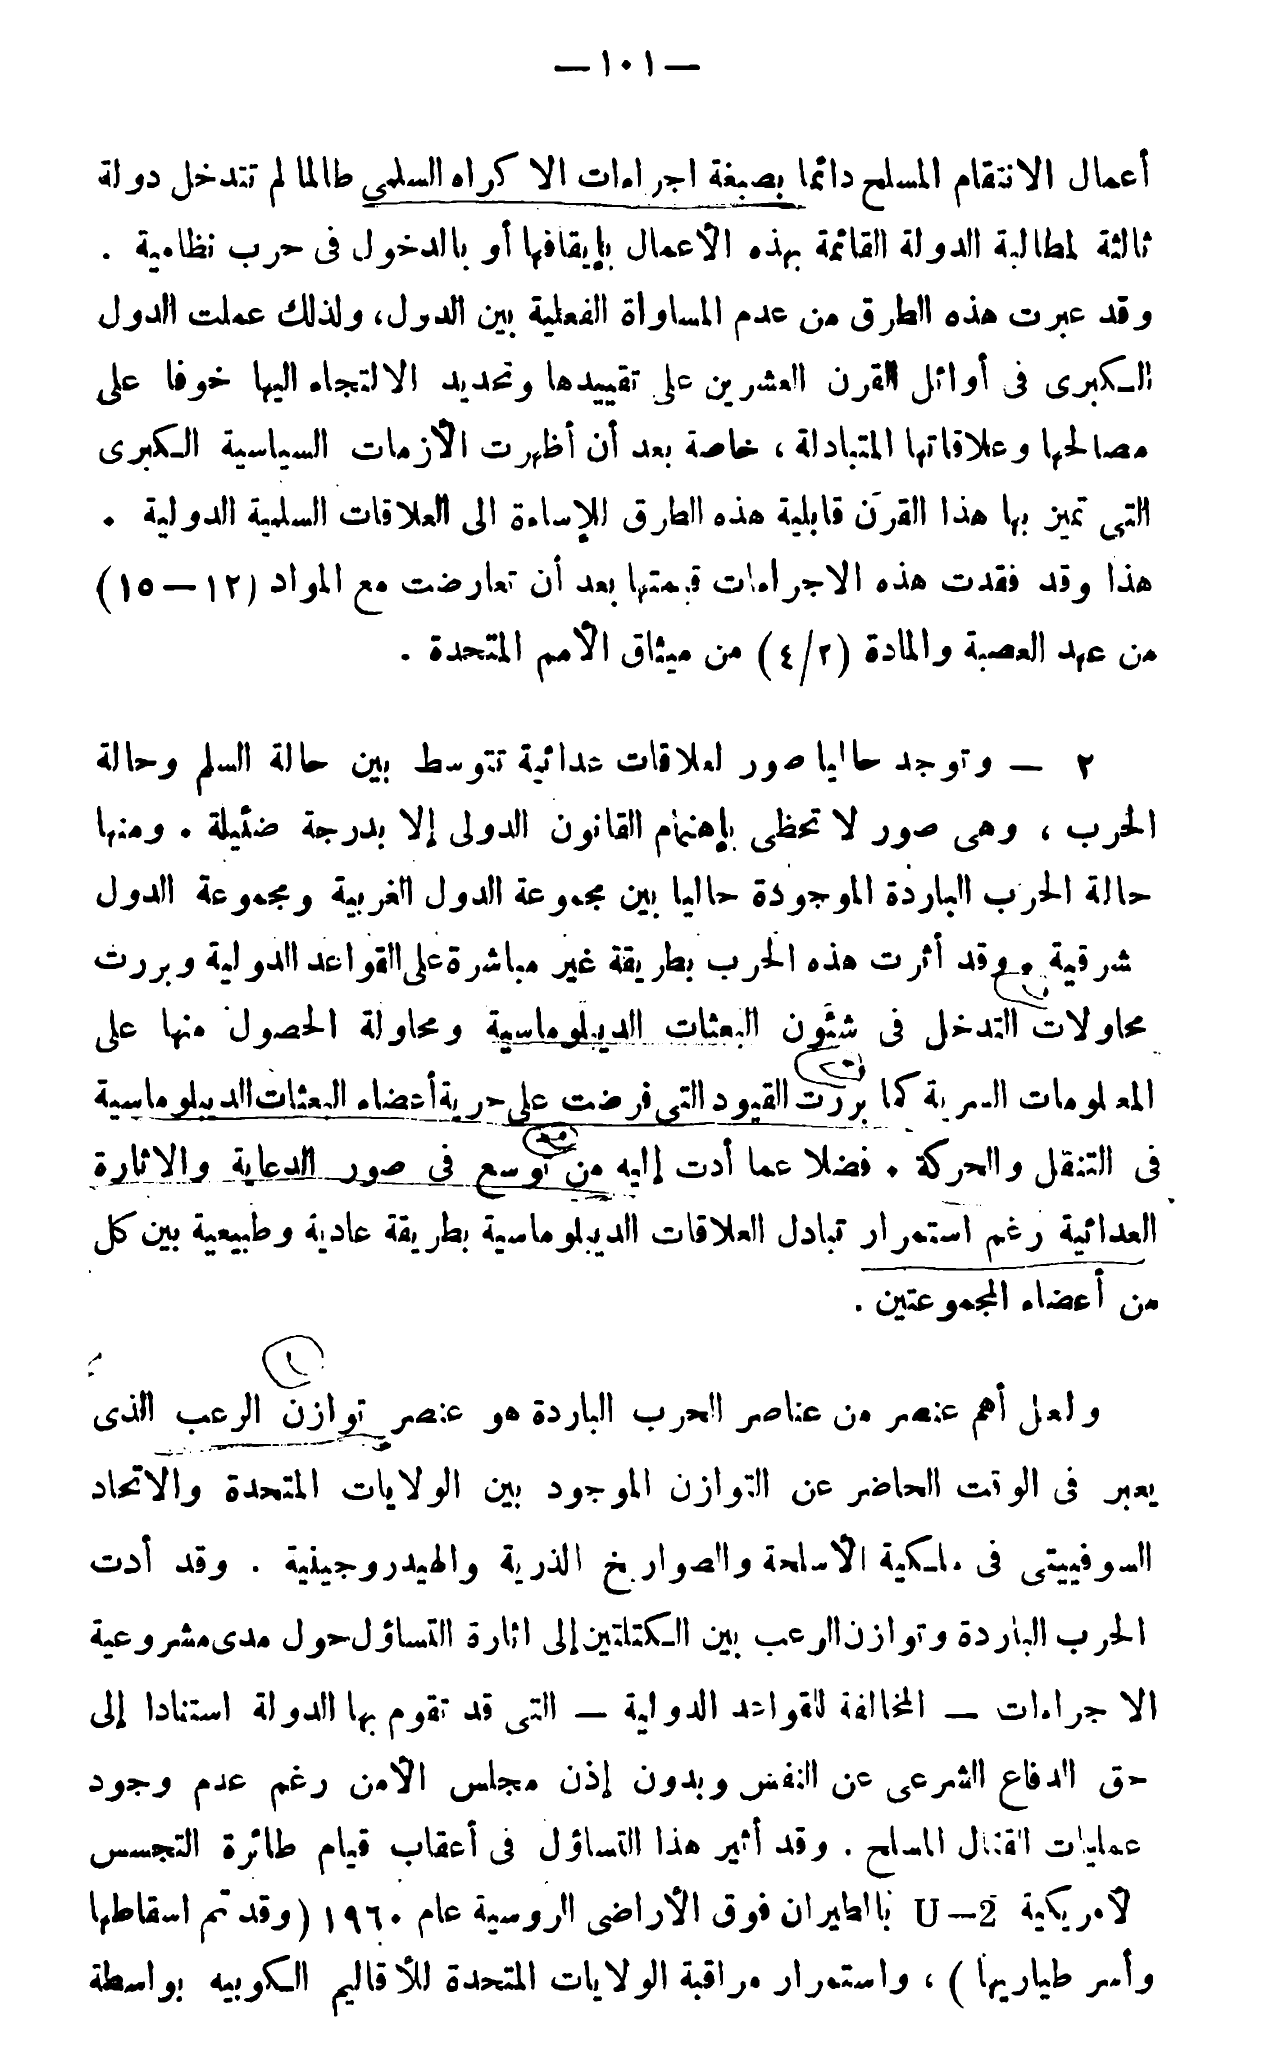 — ١٠١ —
أعمال الانتقام المسلح دائما بصبغة اجراءات الاكراه السلمى طالما لم تتدخل دولة
ثالثة لمطالبة الدولة القائمة بهذه الأعمال بإيقافها أو بالدخول فى حرب نظامية .
وقد عبرت هذه الطرق من عدم المساواة الفعلية بين الدول، ولذلك عملت الدول
الكبرى فى أوائل القرن العشرين على تقييدها وتحديد الالتجاه اليها خوفا على
مصالحها وعلاقاتها المتبادلة ، خاصة بعد أن أظهرت الأزمات السياسية الكبرى
التى تميز بها هذا القرن قابلية هذه الطرق للإساءة الى العلاقات السلمية الدولية .
هذا وقد فقدت هذه الاجراءات قيمتها بعد أن تعارضت مع المواد (١٢ – ١٥)
من عهد العصبة والمادة (٤/٢) من ميثاق الأمم المتحدة .
٢ — وتوجد حاليا صور لعلاقات عدائية تتوسط بين حالة السلم وحالة
الحرب ، وهى صور لا تحظى بإهتمام القانون الدولى إلا بدرجة ضئيلة . ومنها
حالة الحرب الباردة الموجودة حاليا بين مجموعة الدول الغربية ومجموعة الدول
شرقية . وقد أثرت هذه الحرب بطريقة غير مباشرة على القواعد الدولية وبررت
١
محاولات التدخل فى شئون البعثات الديبلوماسية ومحاولة الحصول منها على
٢
المعلومات السرية كما بررت القيود التى فرضت على حرية أعضاء البعثات الديبلوماسية
٣
فى التنقل والحركة . فضلا عما أدت إليه من توسع فى صور الدعاية والاثارة
العدائية رغم استمرار تبادل العلاقات الديبلوماسية بطريقة عادية وطبيعية بين كل
من أعضاء المجموعتين .
١
ولعل أهم عنصر من عناصر الحرب الباردة هو عنصر توازن الرعب الذى
يعبر فى الوقت الحاضر عن التوازن الموجود بين الولايات المتحدة والاتحاد
السوفييتى فى ملكية الأسلحة والصواريخ الذرية والهيدروجينية . وقد أدت
الحرب الباردة وتوازن الرعب بين الكتلتين إلى اثارة التساؤل حول مدى مشروعية
الاجراءات — المخالفة للقواعد الدولية — التى قد تقوم بها الدولة استنادا إلى
حق الدفاع الشرعى عن النفس وبدون إذن مجلس الأمن رغم عدم وجود
عمليات القتال المسلح . وقد أثير هذا التساؤل فى أعقاب قيام طائرة التجسس
لأمريكية U—2 بالطيران فوق الأراضى الروسية عام ١٩٦٠ (وقد تم اسقاطها
وأسر طياريها ) ، واستمرار مراقبة الولايات المتحدة للأقاليم الكوبيه بواسطة